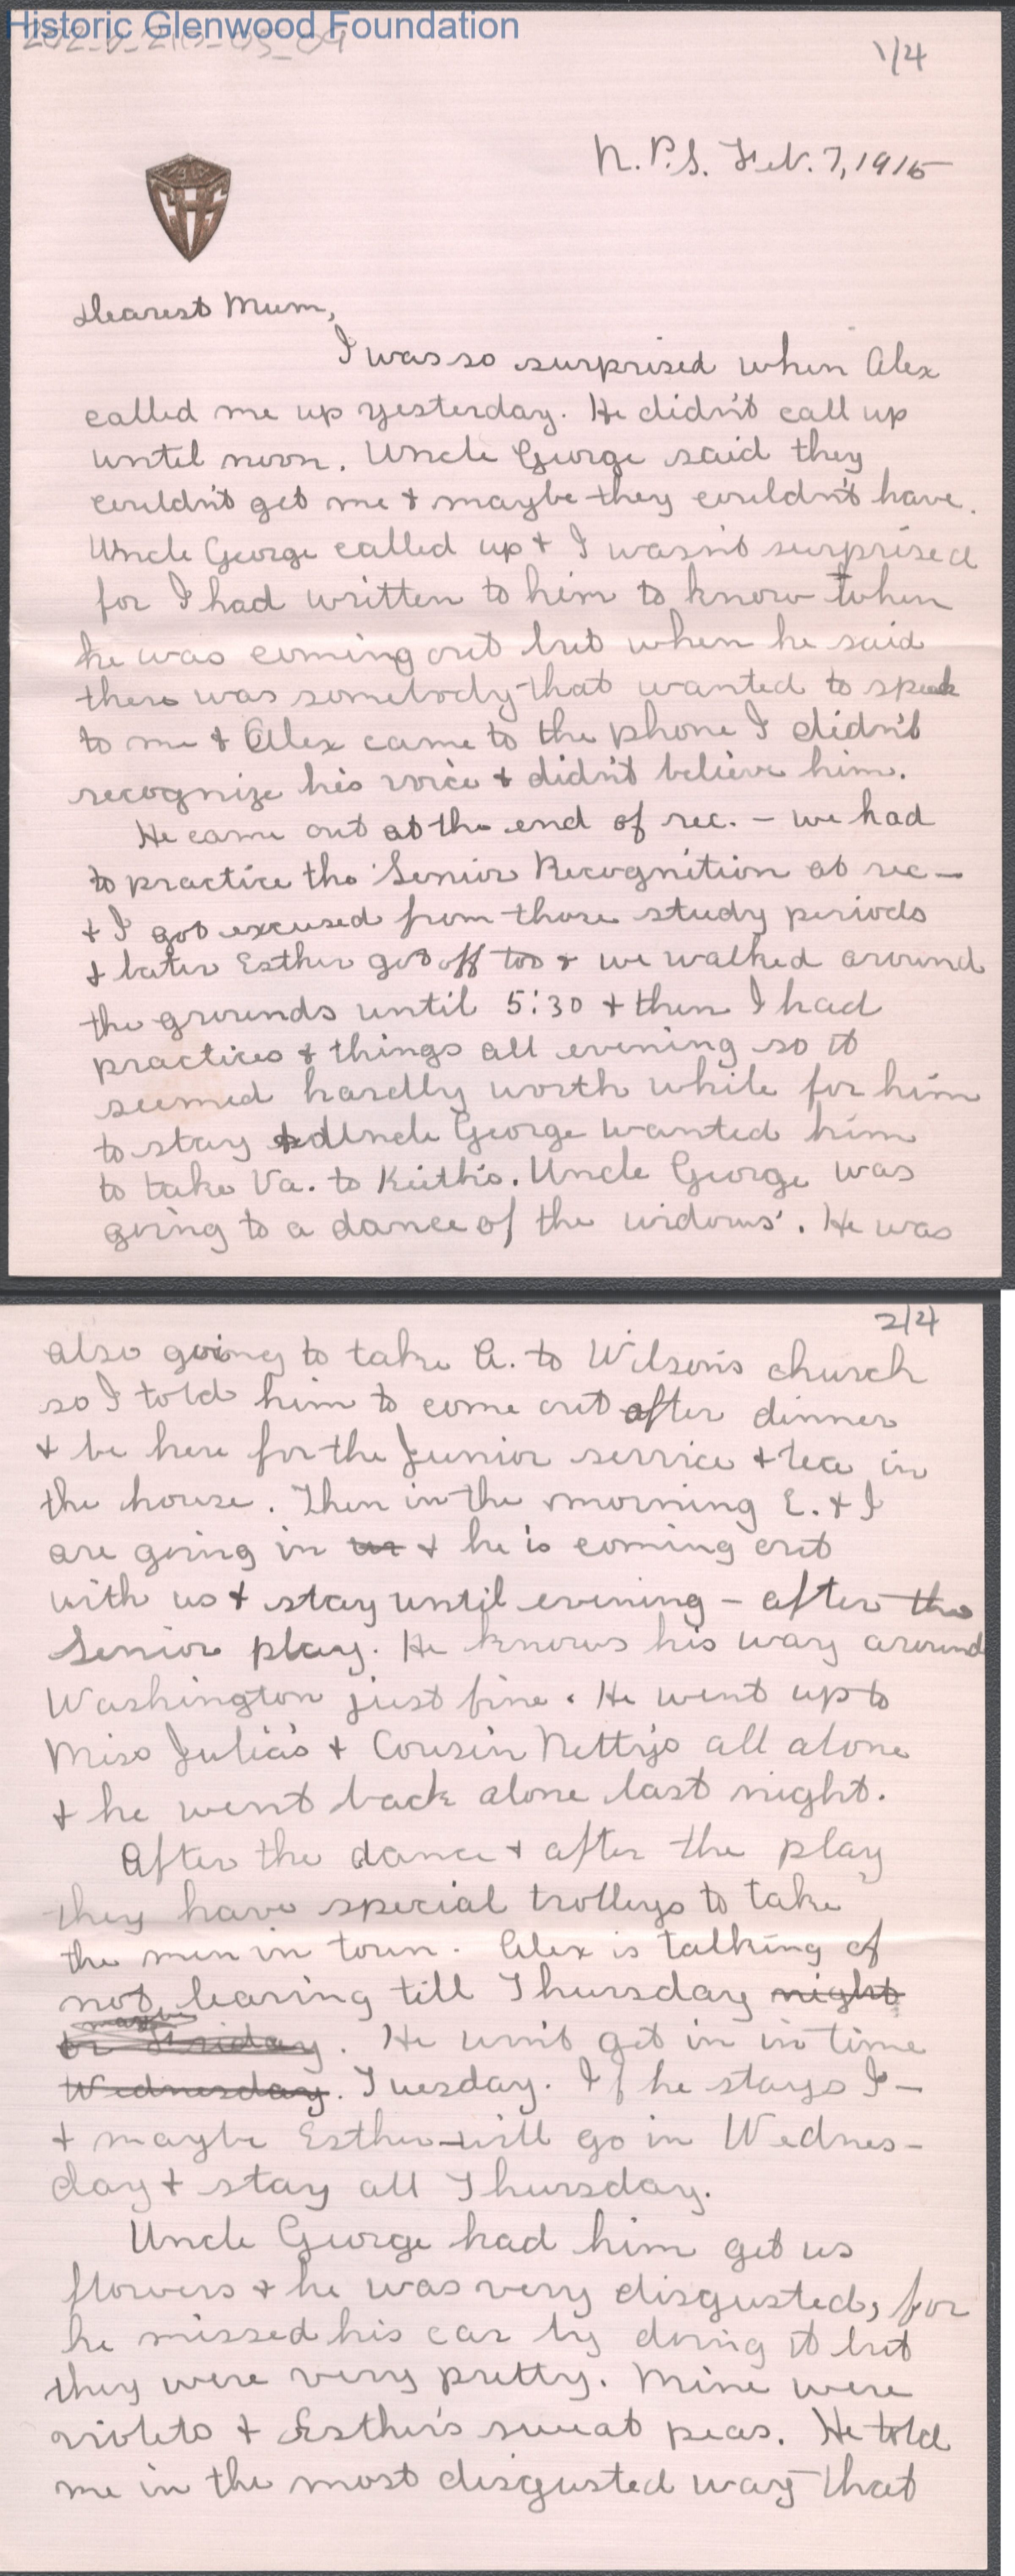 Historic Glenwood Foundation
1/4
N.P.S. Feb. 7, 1915
Dearest Mum,
I was so surprised when Alex
called me up yesterday. He didn't call up
until noon. Uncle George said they
couldn't get me & maybe they couldn't have.
Uncle George called up & I wasn't surprised
for I had written to him to know when
he was coming out but when he said
there was somebody that wanted to speak
to me & Alex came to the phone I didn't
recognize his voice & didn't believe him.
He came out at the end of rec. – we had
to practice the Senior Recognition at rec –
& I got excused from those study periods
& later Esther got off too & we walked around
the grounds until 5:30 & then I had
practices & things all evening so it
seemed hardly worth while for him
to stay Uncle George wanted him
to take Va. to Keith's. Uncle George was
going to a dance of the widows'. He was
2/4
also going to take A. to Wilson's church
so I told him to come out after dinner
& be here for the Junior service & tea in
the house. Then in the morning E. & I
are going in & he is coming out
with us & stay until evening – after the
Senior play. He knows his way around
Washington just fine. He went up to
Miss Julia's & Cousin Netty's all alone
& he went back alone last night.
After the dance & after the play
they have special trolleys to take
the men in town. Alex is talking of
not leaving till Thursday night
maybe
or Friday. He won't get in in time
Wednesday. Tuesday. If he stays I –
& maybe Esther – will go in Wednes-
day & stay all Thursday.
Uncle George had him get us
flowers & he was very disgusted, for
he missed his car by doing it but
they were very pretty. Mine were
violets & Esther's sweat peas. He told
me in the most disgusted way that